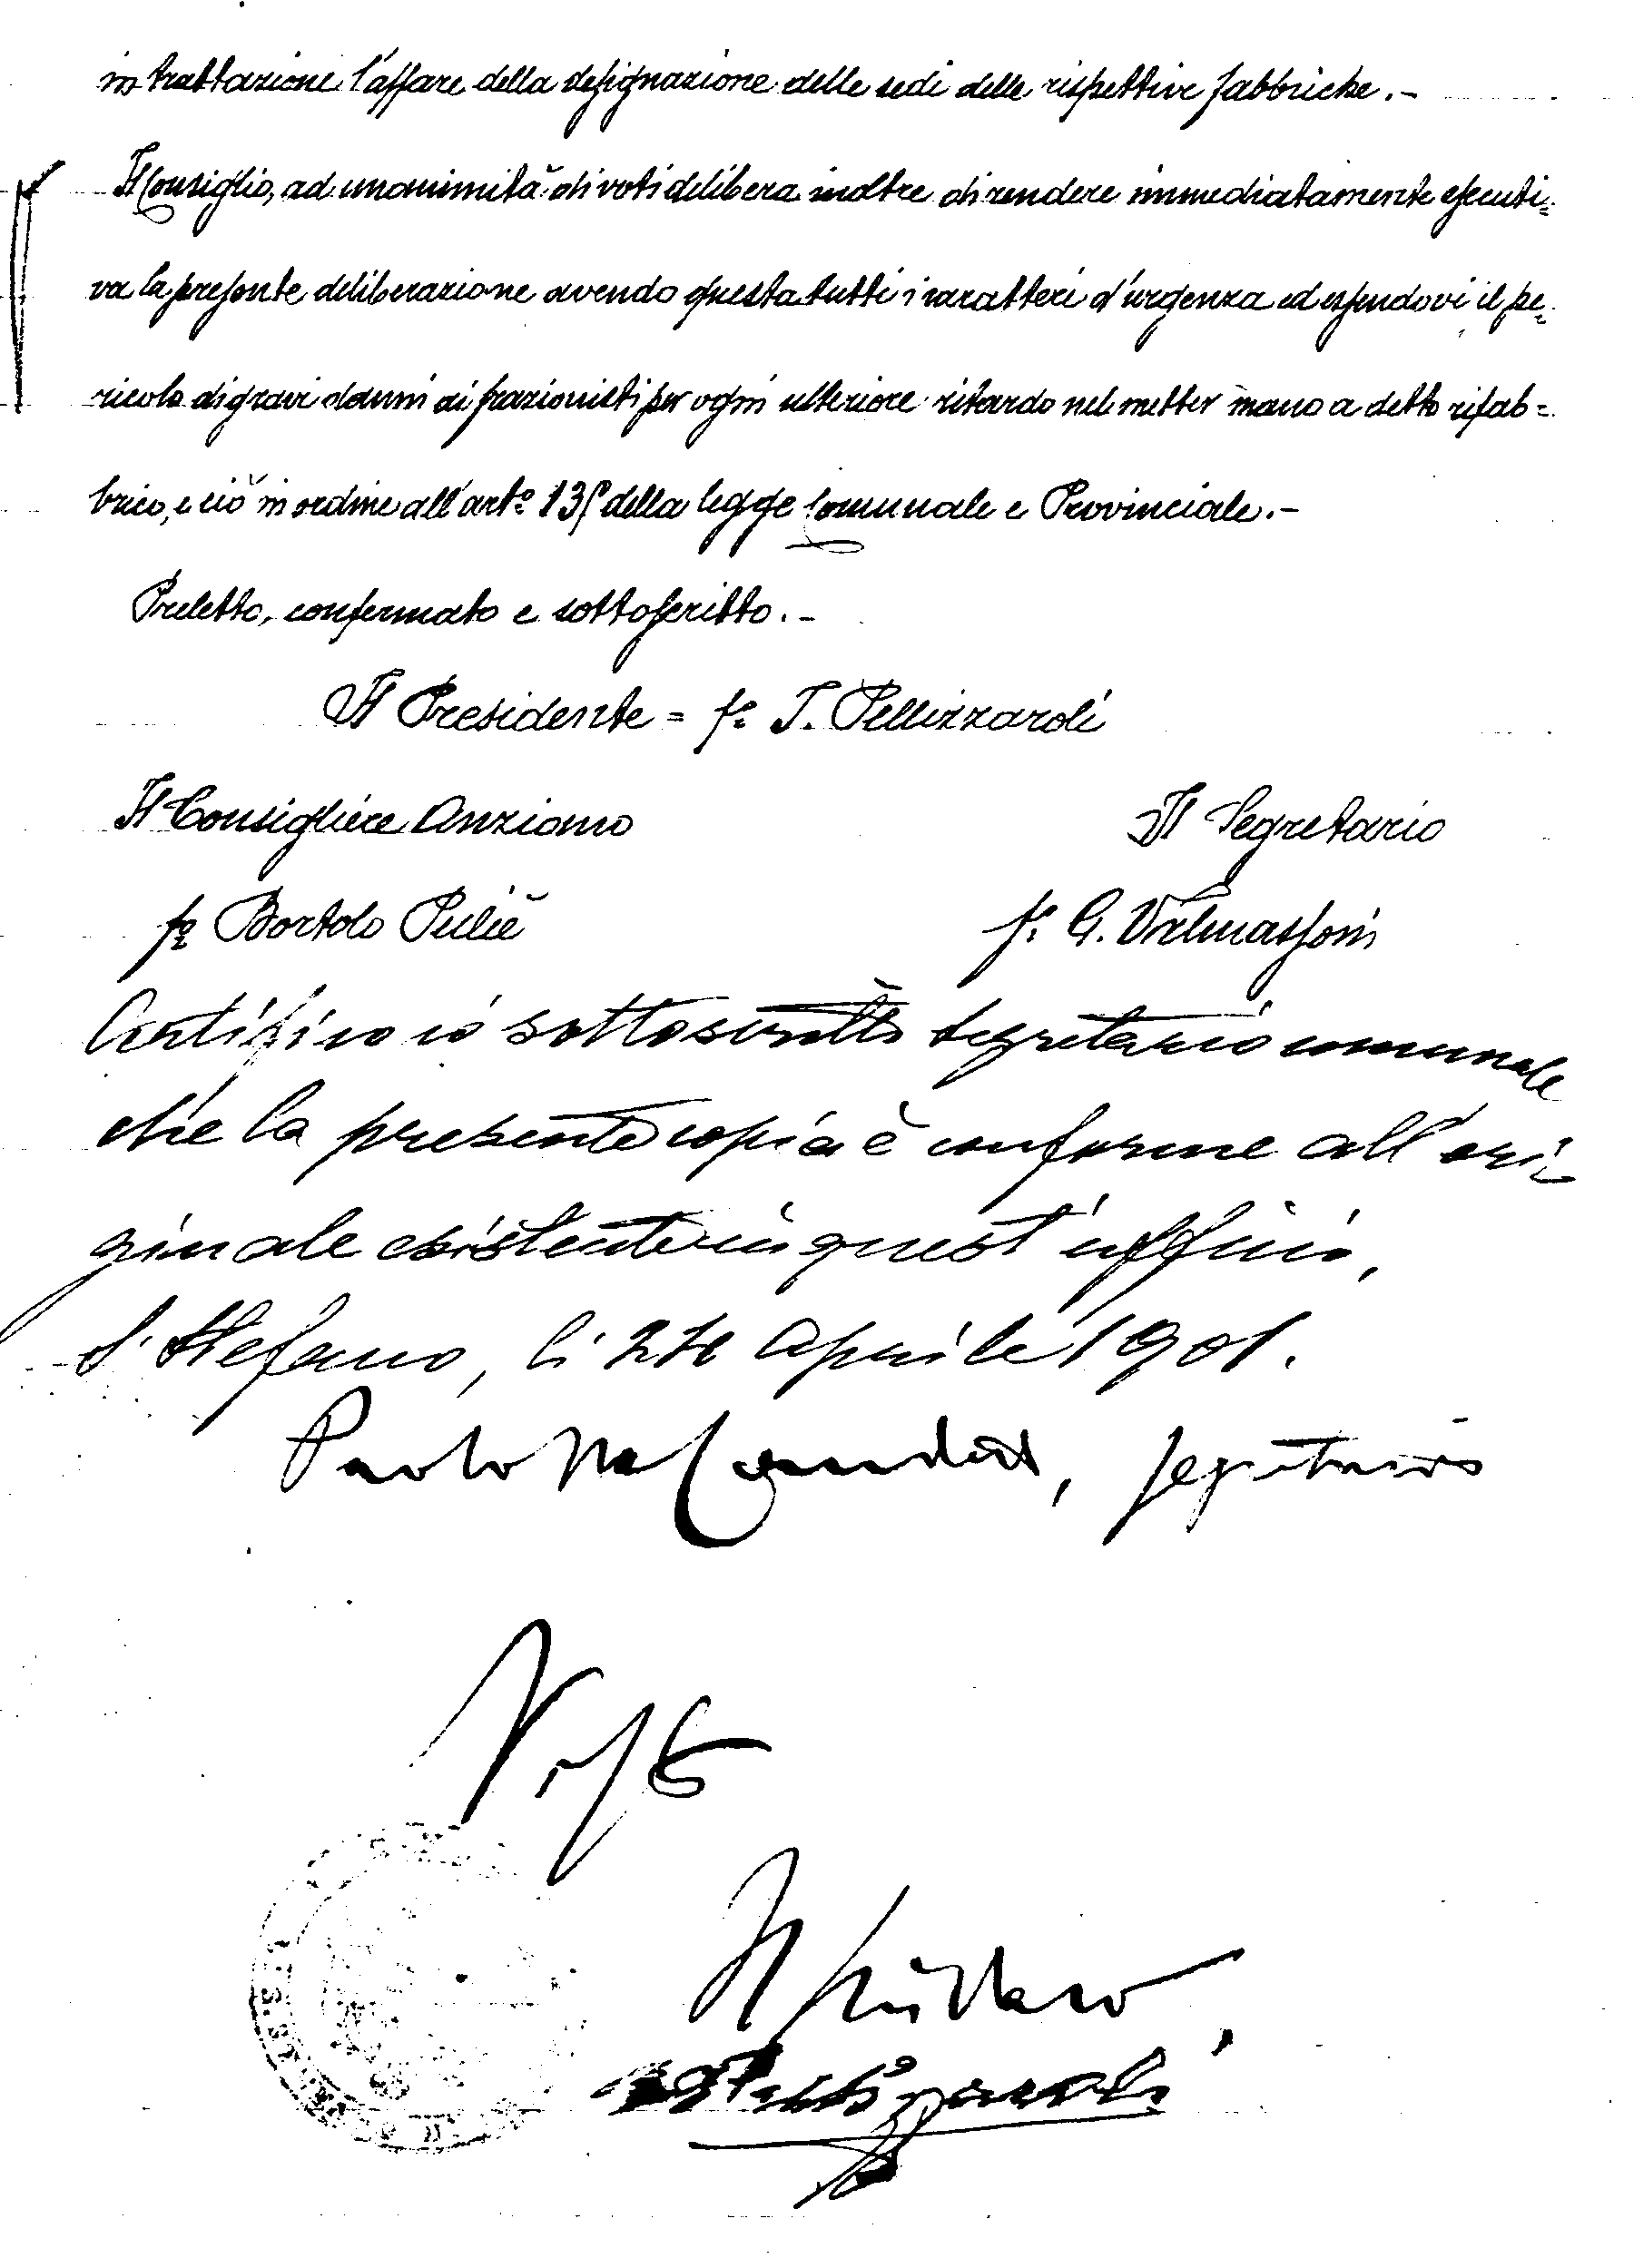 in trattazione l'affare della designazione delle sedi delle rispettive fabbriche.-
Il Consiglio, ad unanimità di voti delibera inoltre di rendere immediatamente esecuti=
va la presente deliberazione avendo questa tutti i caratteri d'urgenza ed essendovi il pe=
ricolo di gravi danni ai frazionisti per ogni ulteriore ritardo nel metter mano a detto rifab=
brico, e ciò in ordine all'arto della legge Comunale e Provinciale.-
Preletto, confermato e sottoscritto.-
Il Presidente = fo T. Pellizzaroli
Il Consigliere Anziano
Il Segretario
fo Bortolo Pulié
fo G. Valmassoni
Certifico io sottoscritto segretario comunale
che la presente copia è conforme all'ori=
ginale esistente in quest'ufficio,
S. Stefano, li aprile 1901.
Paolo, segretario
Visto
Il Sindaco,